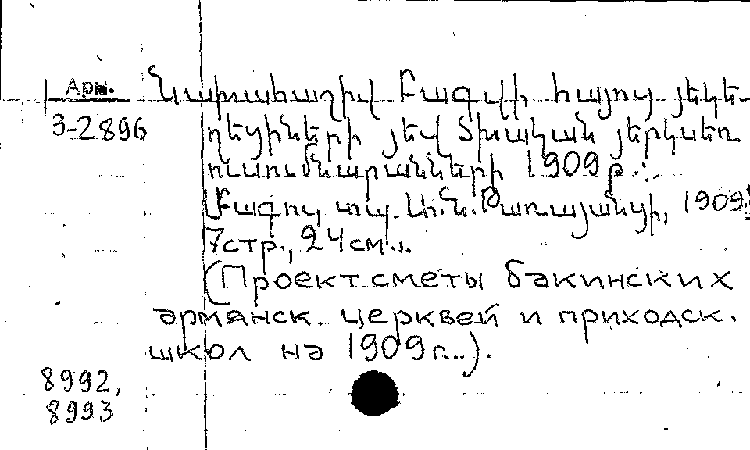 Арм. Նախահաշիվ Բագվի հայոց յեկե-
3-2896 ղեցիների յեվ ծխական յերկսեռ
ուսումնարանների 1909 թ...
Բագու, տպ. Ն. Թառայանցի, 1909.
7стр., 24см...
(Проект сметы бакинских
армянск. церквей и приходск.
школ на 1909г...).
8992,
8993